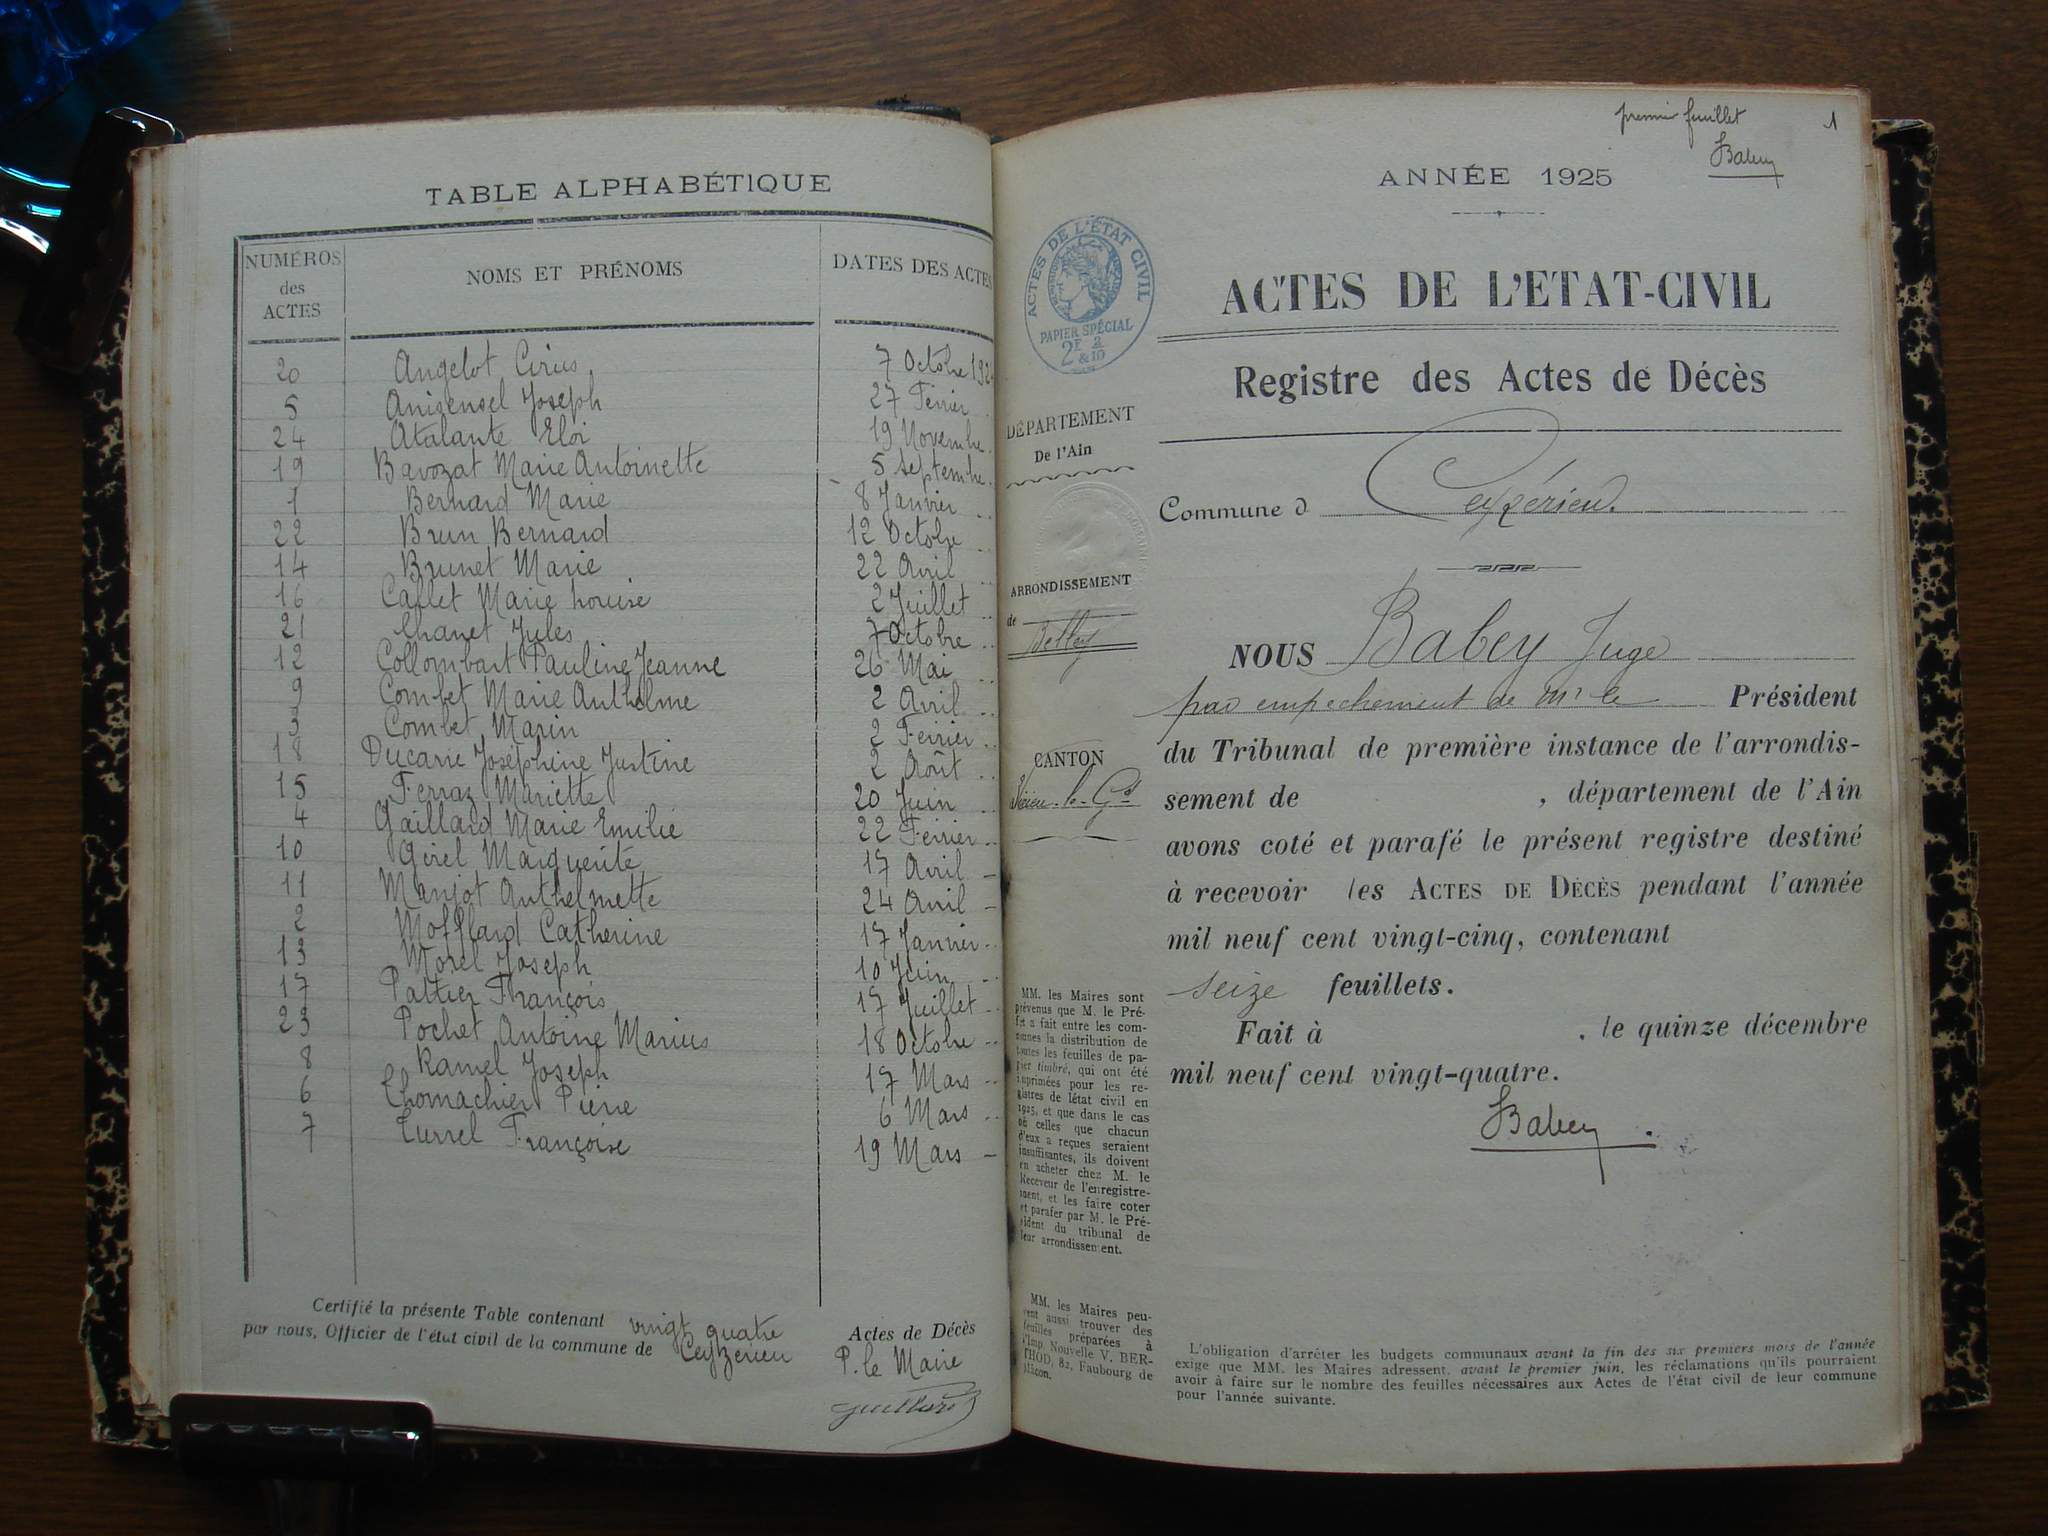 TABLE ALPHABÉTIQUE
NUMÉROS des ACTES NOMS ET PRÉNOMS DATES DES ACTES
20 Angelot Cirius 7 Octobre
5 Joseph 27 Février
24 Atalante Eloi 19 Novembre
19 Bavozat Marie Antoinette 5 Septembre
1 Bernard Marie 8 Janvier
22 Brun Bernard 12 Octobre
14 Brunet Marie 22 Avril
16 Callet Marie Louise 2 Juillet
21 Chanet Jules 7 Octobre
12 Collombart Pauline Jeanne 26 Mai
9 Combet Marie Anthelme 2 Avril
3 Combet Marin 2 Février
18 Ducarre Joséphine Justine 2 Août
15 Ferraz Mariette 20 Juin
4 Gaillard Marie Emilie 22 Février
10 Girel Marguerite 17 Avril
11 Manjot Anthelmette 24 Avril
2 Mofflard Catherine 17 Janvier
13 Morel Joseph 10 Juin
17 Paltier François 17 Juillet
23 Pochet Antoine Marius 18 Octobre
8 Ramel Joseph 17 Mars
6 Thomachier Pierre 6 Mars
7 Turrel Françoise 19 Mars
Certifié la présente Table contenant vingt quatre Actes de Décès
par nous, Officier de l'état civil de la commune de Ceyzerieu P. le Maire
premier feuillet 1
Babey
ANNÉE 1925
ACTES DE L'ÉTAT CIVIL
PAPIER SPÉCIAL
2F 2
& 10
ACTES DE L'ETAT-CIVIL
Registre des Actes de Décès
DÉPARTEMENT
De l'Ain
Commune d Ceyzérieu
ARRONDISSEMENT
de Belley
CANTON
NOUS Babey Juge
par empechement de Mr le Président
du Tribunal de première instance de l'arrondis-
sement de , département de l'Ain
avons coté et parafé le présent registre destiné
à recevoir les ACTES DE DÉCÈS pendant l'année
mil neuf cent vingt-cinq, contenant
seize feuillets.
Fait à , le quinze décembre
mil neuf cent vingt-quatre.
Babey
MM. les Maires sont
prévenus que M. le Pré-
fet a fait entre les com-
munes la distribution de
toutes les feuilles de pa-
pier timbré, qui ont été
imprimées pour les re-
gistres de létat civil en
1925, et que dans le cas
où celles que chacun
d'eux a reçues seraient
insuffisantes, ils doivent
en acheter chez M. le
Receveur de l'enregistre-
ment, et les faire coter
et parafer par M. le Pré-
sident du tribunal de
leur arrondissement.
MM. les Maires peu-
vent aussi trouver des
feuilles préparées à
l'Imp. Nouvelle V. BER-
THOD, 82, Faubourg de
Mâcon.
L'obligation d'arréter les budgets communaux avant la fin des six premiers mois de l'année
exige que MM. les Maires adressent, avant le premier juin, les réclamations qu'ils pourraient
avoir à faire sur le nombre des feuilles nécessaires aux Actes de l'état civil de leur commune
pour l'année suivante.